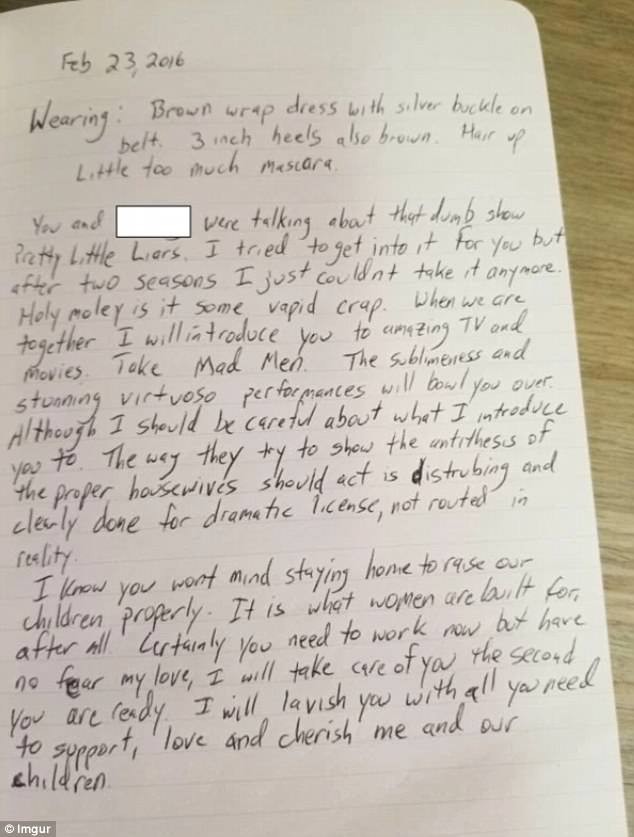 Feb 23, 2016
Wearing: Brown wrap dress with silver buckle on
belt. 3 inch heels also brown. Hair up
Little too much mascara.
You and were talking about that dumb show
Pretty Little Liars. I tried to get into it for you but
after two seasons I just couldnt take it anymore.
Holy moley is it some vapid crap. When we are
together I will introduce you to amazing TV and
movies. Take Mad Men. The sublimeness and
stunning virtuoso performances will bowl you over.
Although I should be careful about what I introduce
you to. The way they try to show the antithesis of
the proper housewives should act is distrubing and
clearly done for dramatic license, not routed in
reality.
I know you wont mind staying home to raise our
children properly. It is what women are built for,
after all. Certainly you need to work now but have
no fear my love, I will take care of you the second
you are ready. I will lavish you with all you need
to support, love and cherish me and our
children.
© Imgur